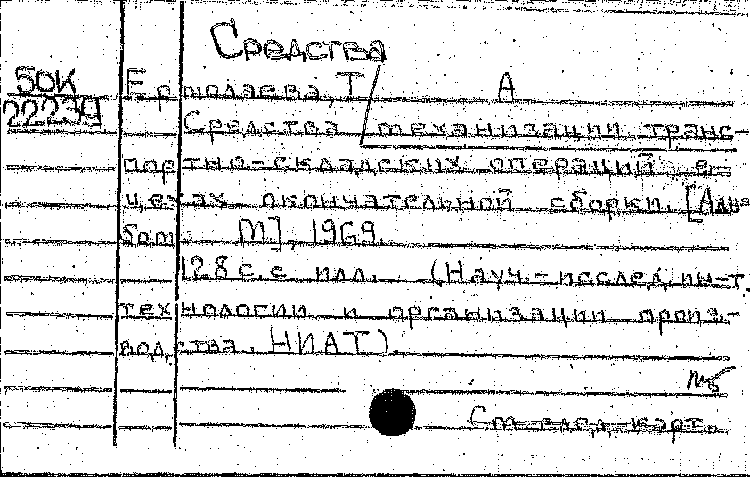 Средства
50К
22239
Ермолаева, Т А
Средства механизации транс-
портно-складских операций в
цехах окончательной сборки. [Альбом.
М], 1969.
128 с. с илл. (Науч.-исслед. ин-т.
технологии и организации произ-
водства. НИАТ).
См след. карт.